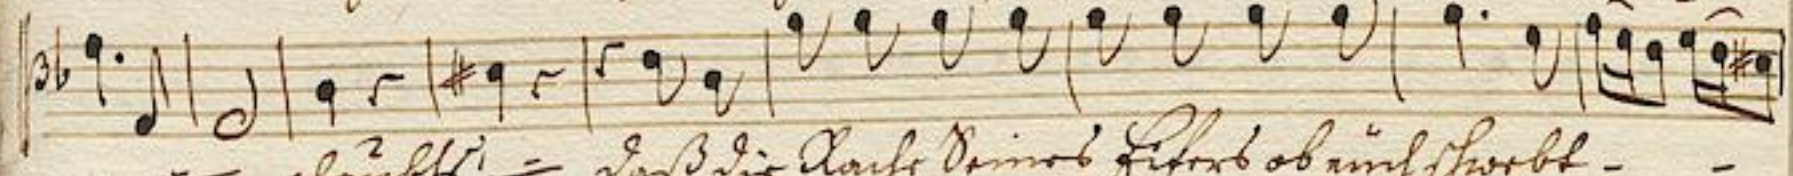 daß die Rache Seines Eifers ob euch schwebt - -